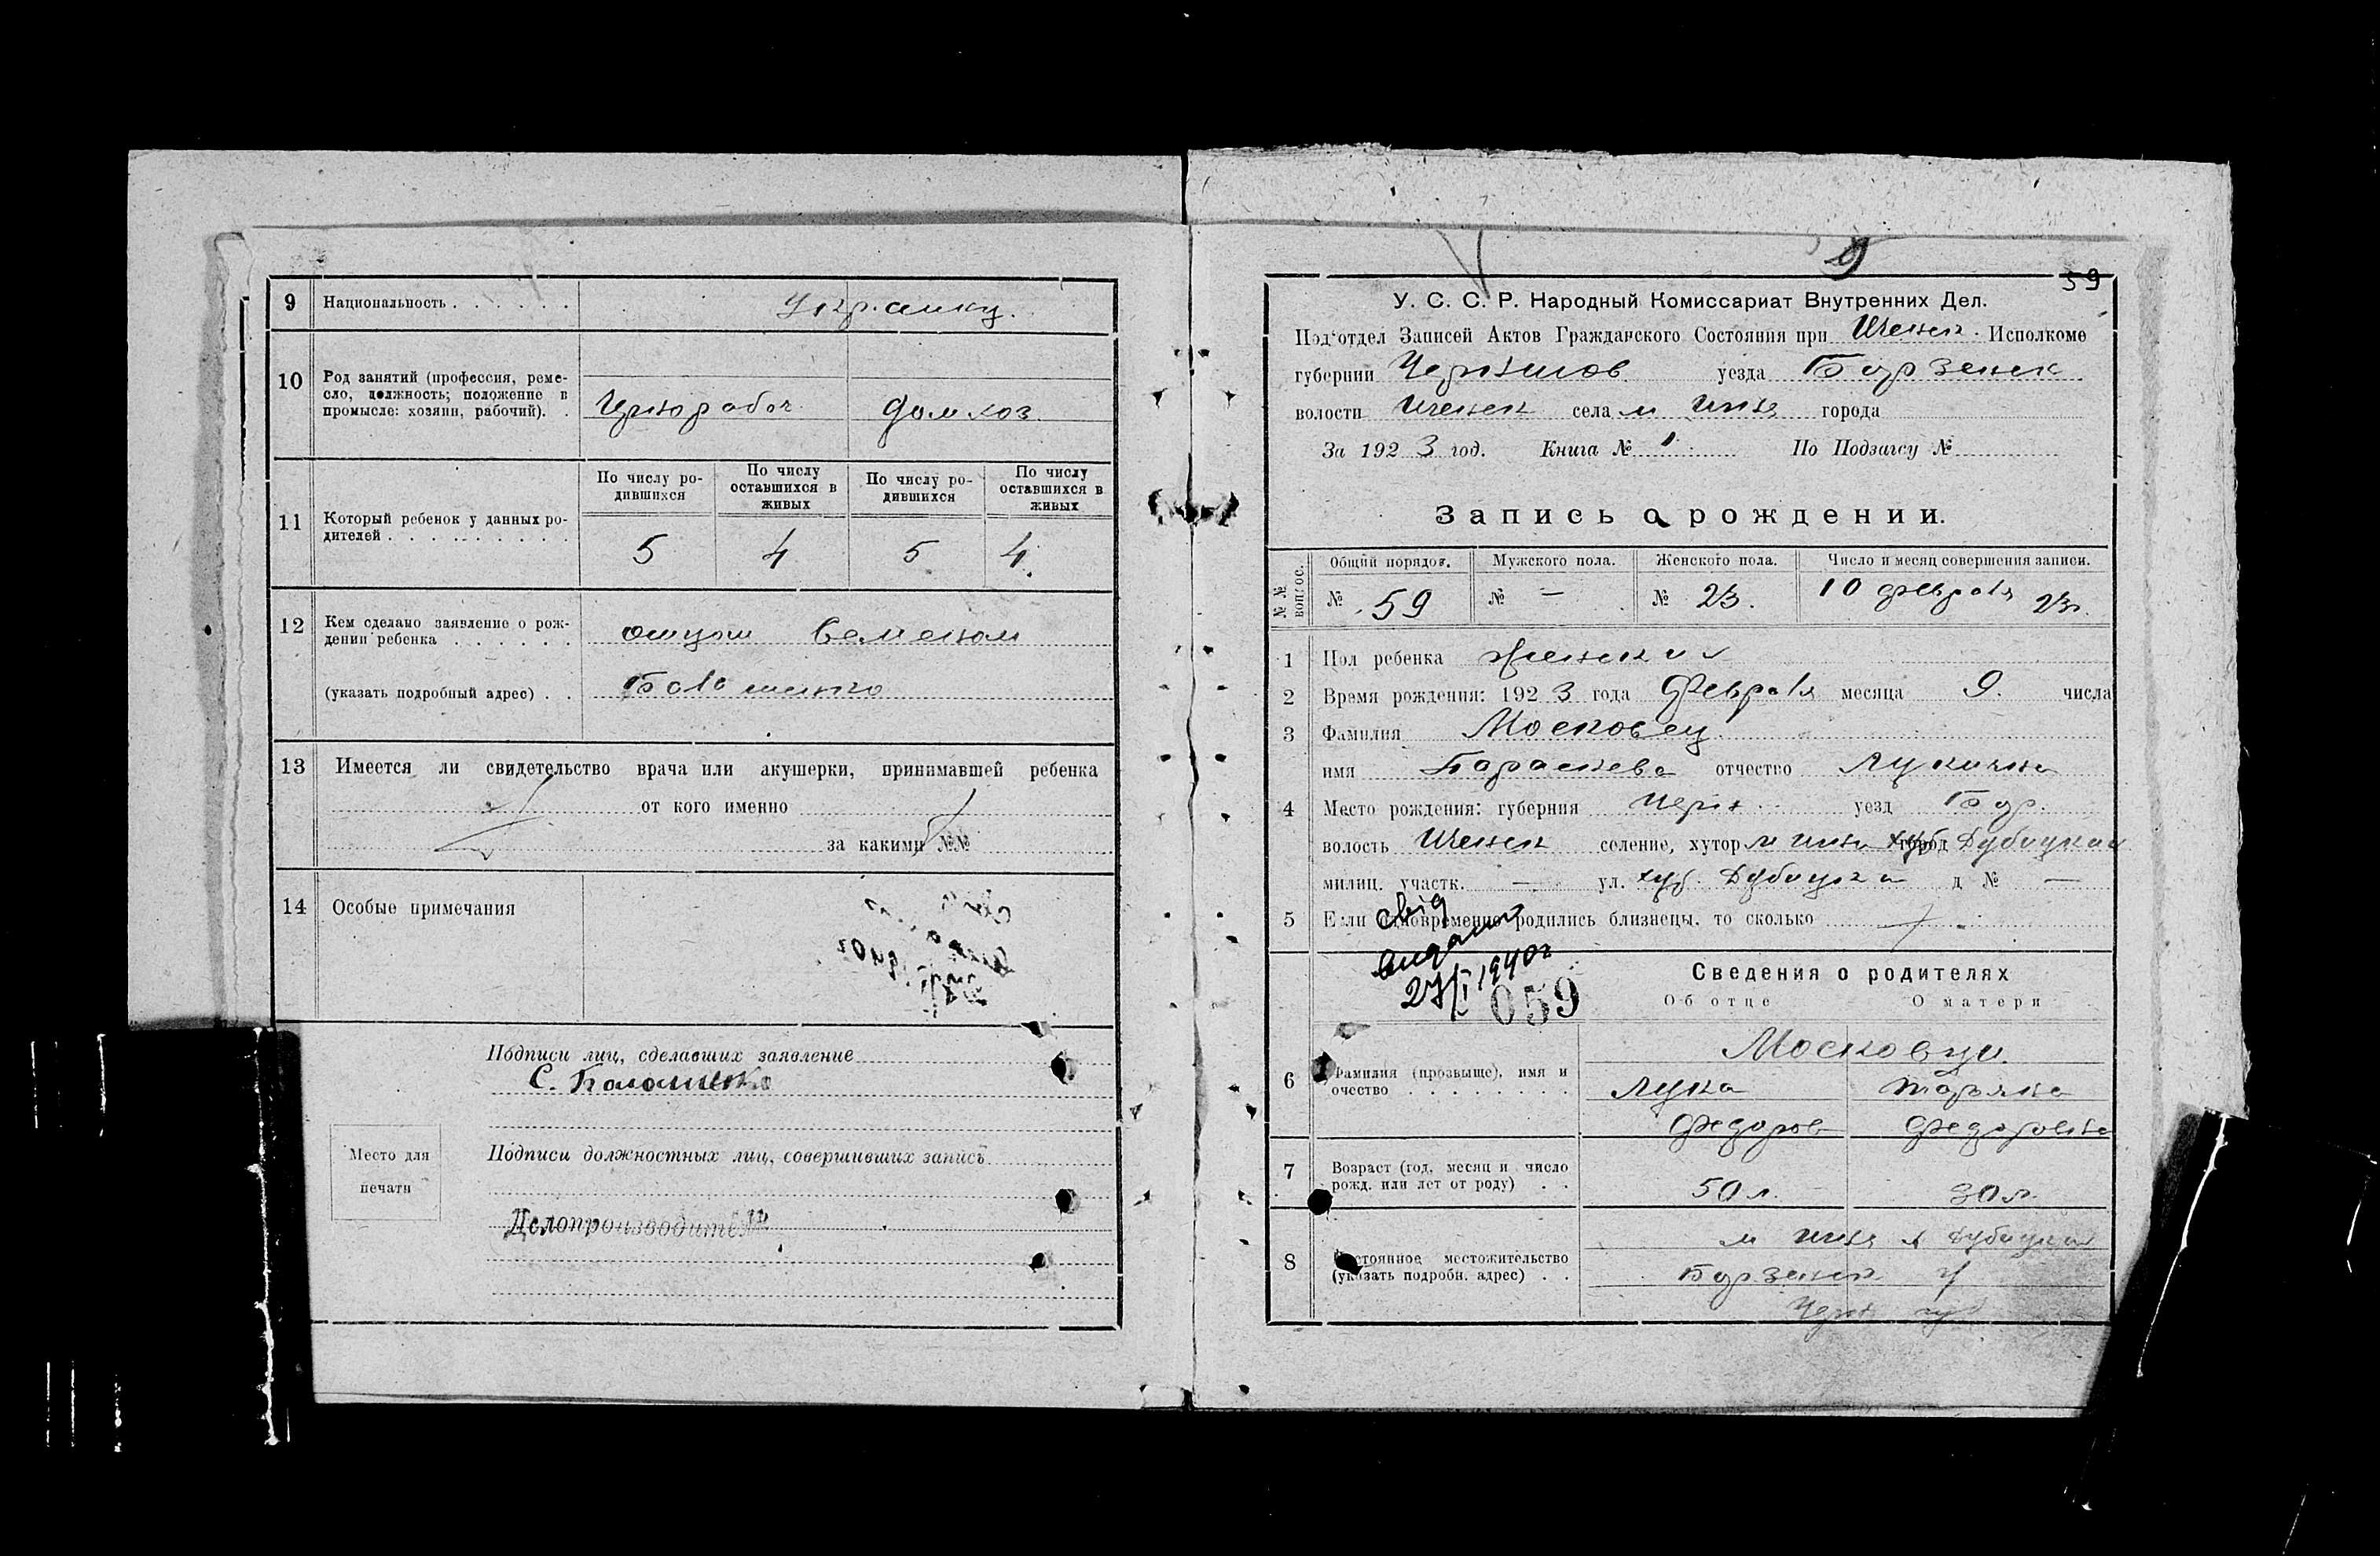 9 Национальность . . . . . . Украинц.
10 Род занятий (профессия, реме-
сло, должность; положение в
промысле: хозяин, рабочий). . Чернорабоч. домхоз.
По числу ро-
дившихся
По числу
оставшихся в
живых
По числу ро-
дившихся
По числу
оставшихся в
живых
11 Который ребенок у данных ро-
дителей . . . . . . . . . .
5 4 5 4.
12 Кем сделано заявление о рож-
дении ребенка . . . . . .
(указать подробный адрес) . .
13 Имеется ли свидетельство врача или акушерки, принимавшей ребенка
от кого именно
за какими №№
14 Особые примечания
Подписи лиц, сделавших заявление
Место для
печати
Подписи должностных лиц, совершивших запись
Делопроизводитель
9
59
У. С. С. Р. Народный Комиссариат Внутренних Дел.
Под‘отдел Записей Актов Гражданского Состояния при Ичен. Исполкоме
губернии Чернигов. уезда Борзенск
волости Иченск села м Ичня города
За 1923 год. Книга № 1 По Подзагсу №
Запись о рождении.
№ №
вопрос.
Общий порядов. Мужского пола. Женского пола. Число и месяц совершения записи.
№ 59 № — № 23. 10 февраля 23г.
1 Пол ребенка женский
2 Время рождения: 1923 года Февраля месяца 9. числа
3 Фамилия Московец
имя Параскева отчество Лукична
4 Место рождения: губерния Черн. уезд Бор.
волость Иченск селение, хутор м Ичня хут город Дубицкий
милиц. участк. — ул. д № —
5 Если одновременно родились близнецы, то сколько
свід
видано
27/I 1940г
059
Сведения о родителях
Об отце О матери
6 Фамилия (прозвыще), имя и
очество . . . . . . . .
Московци
Лука Марьяна
Федоров Федоровна
7 Возраст (год, месяц и число
рожд. или лет от роду) . . 50 л. 30 л.
8 Постоянное местожительство
(указать подробн. адрес) . .
м Ичня х Дубицкий
Борзенск у
Черн губ